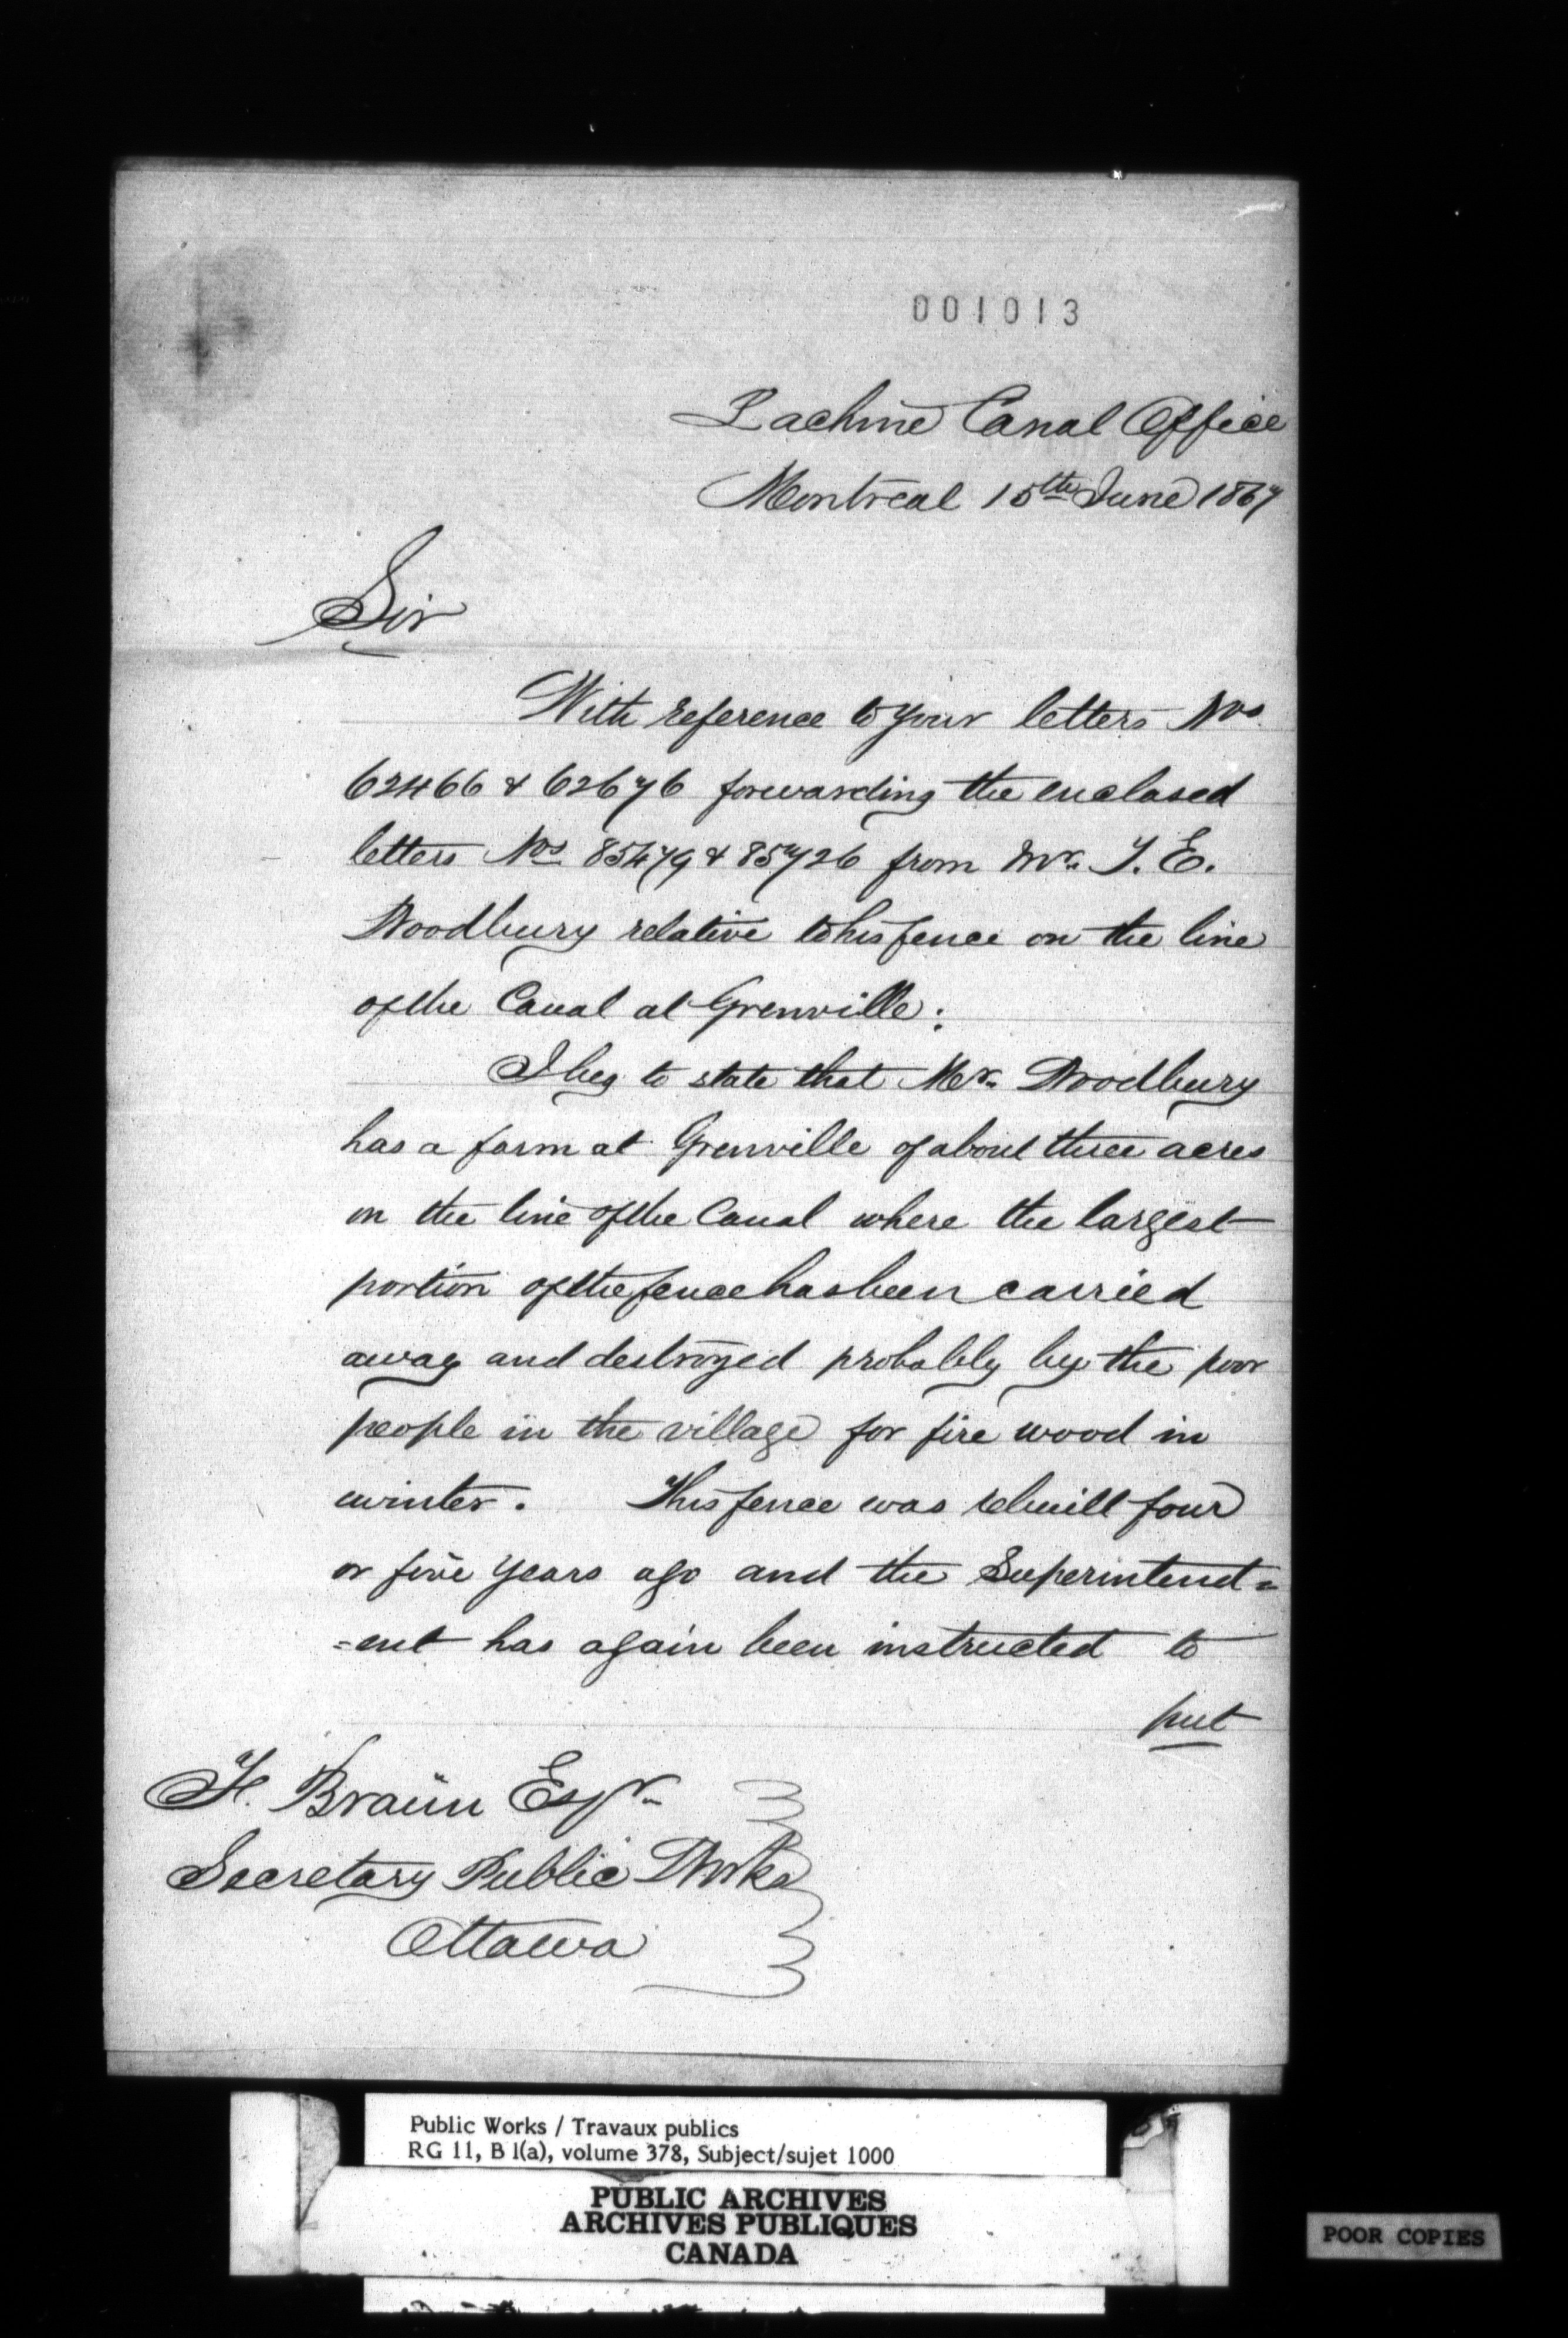 001013
Lachine Canal Office
Montreal 15th June 1867
Sir
With reference to your letters Nos
62466 & 62676 forwarding the enclosed
letters Nos 85479 & 85726 from Mr. T. E.
Woodbury relative to his fence on the line
of the Canal at Grenville:
I beg to state that Mr. Woodbury
has a farm at Grenville of about three acres
on the line of the Canal where the largest
portion of the fence has been carried
away and destroyed probably by the poor
people in the village for fire wood in
winter. This fence was rebuilt four
or five years ago and the Superintend=
=ent has again been instructed to
put
F. Braün Esqr.
Secretary Public Works
Ottawa
Public Works / Travaux publics
RG 11, B 1(a), volume 378, Subject/sujet 1000
PUBLIC ARCHIVES
ARCHIVES PUBLIQUES
CANADA
POOR COPIES